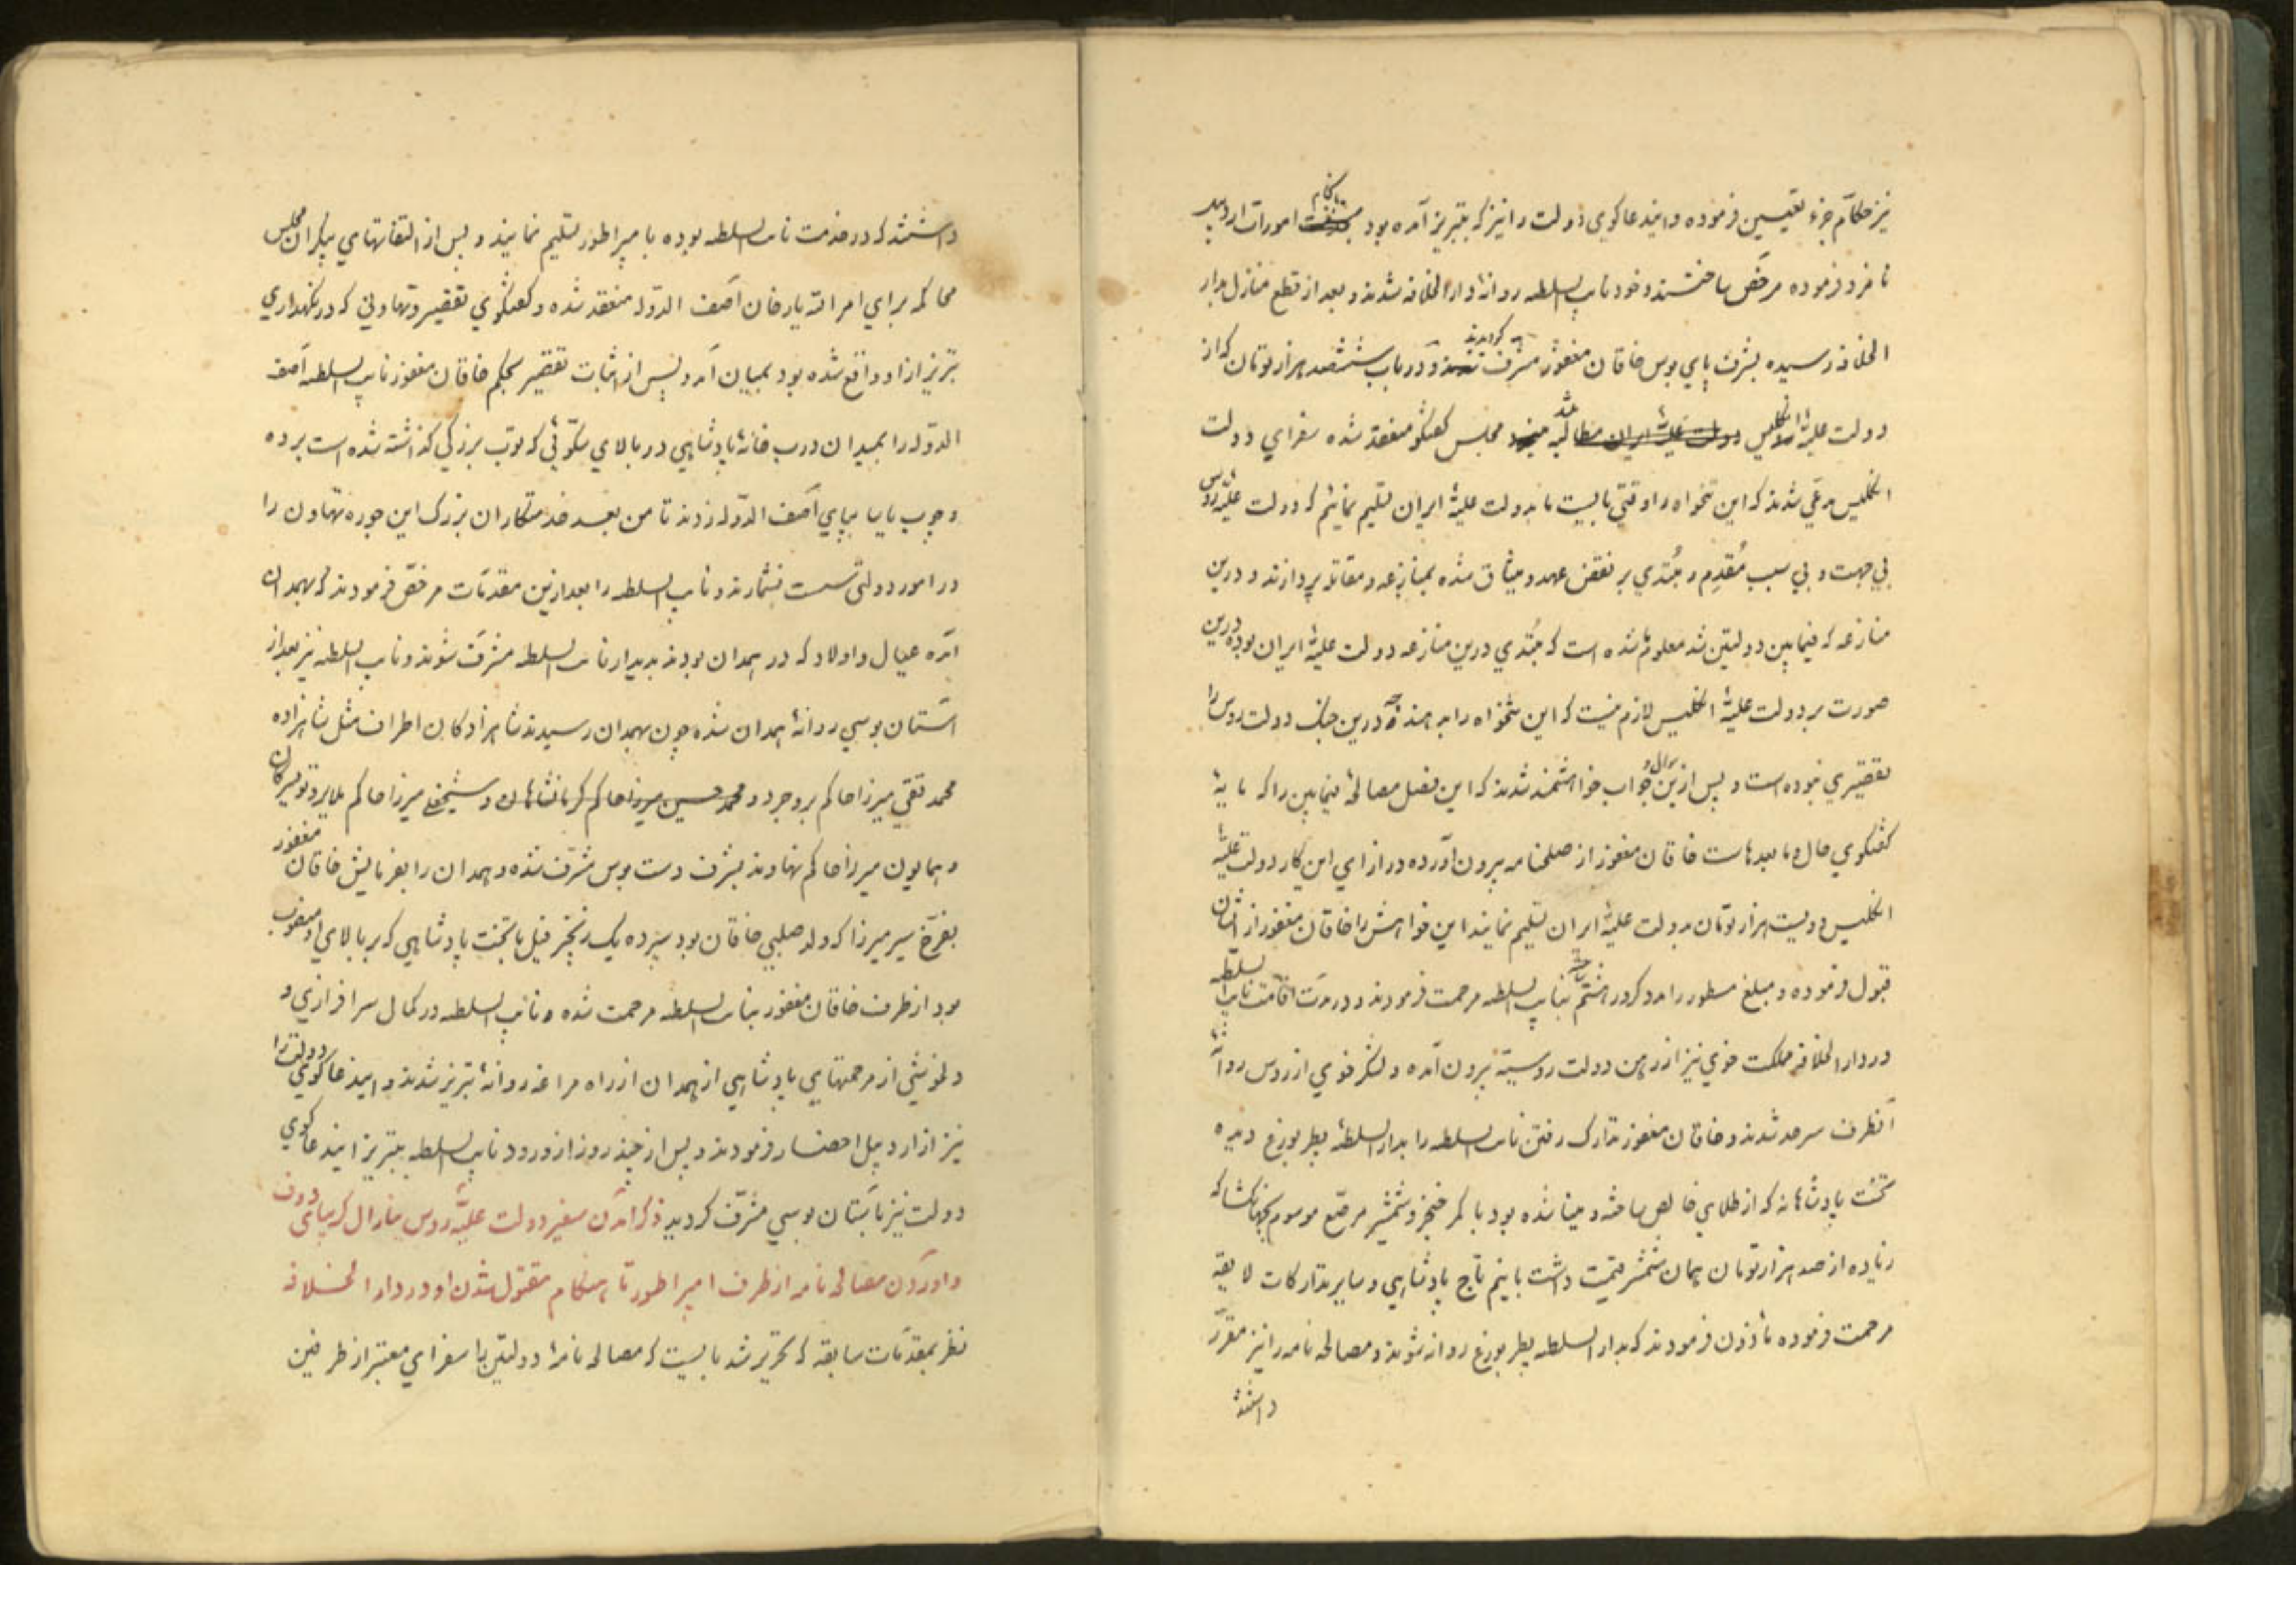 نیز حکّام جزء تعیین فرموده و ایند عاکوی دولت را نیز که بتبریز آمده بود بحکام امورات اردبیل
نامزد فرموده مرخّص ساختند و خود نایب السلطه روانهٔ دارالخلافه شدند و بعد از قطع منازل بدار
الخلافه رسیده بشرف پای بوس خاقان مغفور مشرف گردیدند و در باب ششصد هزار تومان که از
دولت علیهٔ انگلیس مطالبه شد مجلس گفتگو منعقد شده سفرای دولت
انگلیس مدعی شدند که این تنخواه را وقتی بایست ما بدولت علیهٔ ایران تسلیم نمائیم که دولت علیّهٔ روس
بی جهت و بی سبب مُقدِم و مُبتدی بر نقض عهد و میثاق شده بمنازعه و مقاتله پردازند و درین
منازعه که فیمابین دولتین شد معلوم شده است که مُبتدی درین منازعه دولت علیهٔ ایران بوده درین
صورت بر دولت علیهٔ انگلیس لازم نیست که این تنخواه را بدهند چه درین جنگ دولت روس را
تقصیری نبوده است و پس ازین سؤال و جواب خواهشمند شدند که این فصل مصالحهٔ فیمابین را که مایهٔ
گفتگوی حال و مابعدهاست خاقان مغفور از صلحنامه بیرون آورده در ازای این کار دولت علیّهٔ
انگلیس دویست هزار تومان بدولت علیهٔ ایران تسلیم نمایند این خواهش را خاقان مغفور از ایشان
قبول فرموده و مبلغ مسطور را بدو کرور هشتم بنایب السلطه مرحمت فرمودند و در مدّت اقامت نایب السلطه
در دارالخلافه مملکت خوی نیز از رهن دولت روسیّه بیرون آمده و لشکر خوی از روس روانهٔ
آنطرف سرحد شدند و خاقان مغفور تدارک رفتن نایب السلطه را بدارالسلطهٔ پطربورغ دیده
تخت پادشاهانه که از طلای خالص ساخته و مینا شده بود با کمر خنجر و شمشیر مرصّع موسوم بجهانگشا که
زیاده از صد هزار تومان همان شمشیر قیمت داشت با نیم تاج پادشاهی و سایر تدارکات لایقه
مرحمت فرموده مأذون فرمودند که بدارالسلطه پطربورغ روانه شوند و مصالحه نامه را نیز مقرّر
داشتند
داشتند که در خدمت نایب السلطه بوده بامپراطور تسلیم نمایند و پس از التفاتهای بیکران مجلس
محاکمه برای امر الله یار خان آصف الدّوله منعقد شده و گفتگوی تقصیر و تهاونی که در نگهداری
تبریز از او واقع شده بود بمیان آمد و پس از اثبات تقصیر بحکم خاقان مغفور نایب السلطه آصف
الدّوله را بمیدان درب خانهٔ پادشاهی در بالای سکّوئی که توپ بزرگی گذاشته شده است برده
و چوب یاسا بپای آصف الدّوله زدند تا من بعد خدمتکاران بزرگ این جوره تهاون را
در امور دولتی سست نشمارند و نایب السلطه را بعد ازین مقدّمات مرخّص فرمودند که بهمدان
آمده عیال و اولاد که در همدان بودند بدیدار نایب السلطه مشرّف شوند و نایب السلطه نیز بعد از
آستان بوسی روانهٔ همدان شده چون بهمدان رسیدند شاهزادکان اطراف مثل شاهزاده
محمد تقی میرزا حاکم بروجرد و محمد حسین میرزا حاکم کرمانشاهان و شیخعلی میرزا حاکم ملایر و تویسرکان
و همایون میرزا حاکم نهاوند بشرف دست بوس مشرّف شده و همدان را بفرمایش خاقان مغفور
بفرّخ سیر میرزا که ولد صلبی خاقان بود سپرده یک زنجیر فیل با تخت پادشاهی که بر بالای او منصوب
بود از طرف خاقان مغفور بنایب السلطه مرحمت شده و نایب السلطه در کمال سرافرازی و
دلخوشی از مرحمتهایی پادشاهی از همدان از راه مراغه روانهٔ تبریز شدند و ایند عاکوی دولت را
نیز از اردبیل احضار فرمودند و پس از چند روز از ورود نایب السلطه بتبریز ایند عاکوی
دولت نیز بآستان بوسی مشرّف کردید ذکر آمدن سفیر دولت علیّهٔ روس ینارال کریبایدوف
و آوردن مصالحه نامه از طرف امپراطور تا هنگام مقتول شدن او در دار الخلافه
نظر بمقدّمات سابقه که تحریر شد بایست که مصالحه نامهٔ دولتین با سفرای معتبر از طرفین